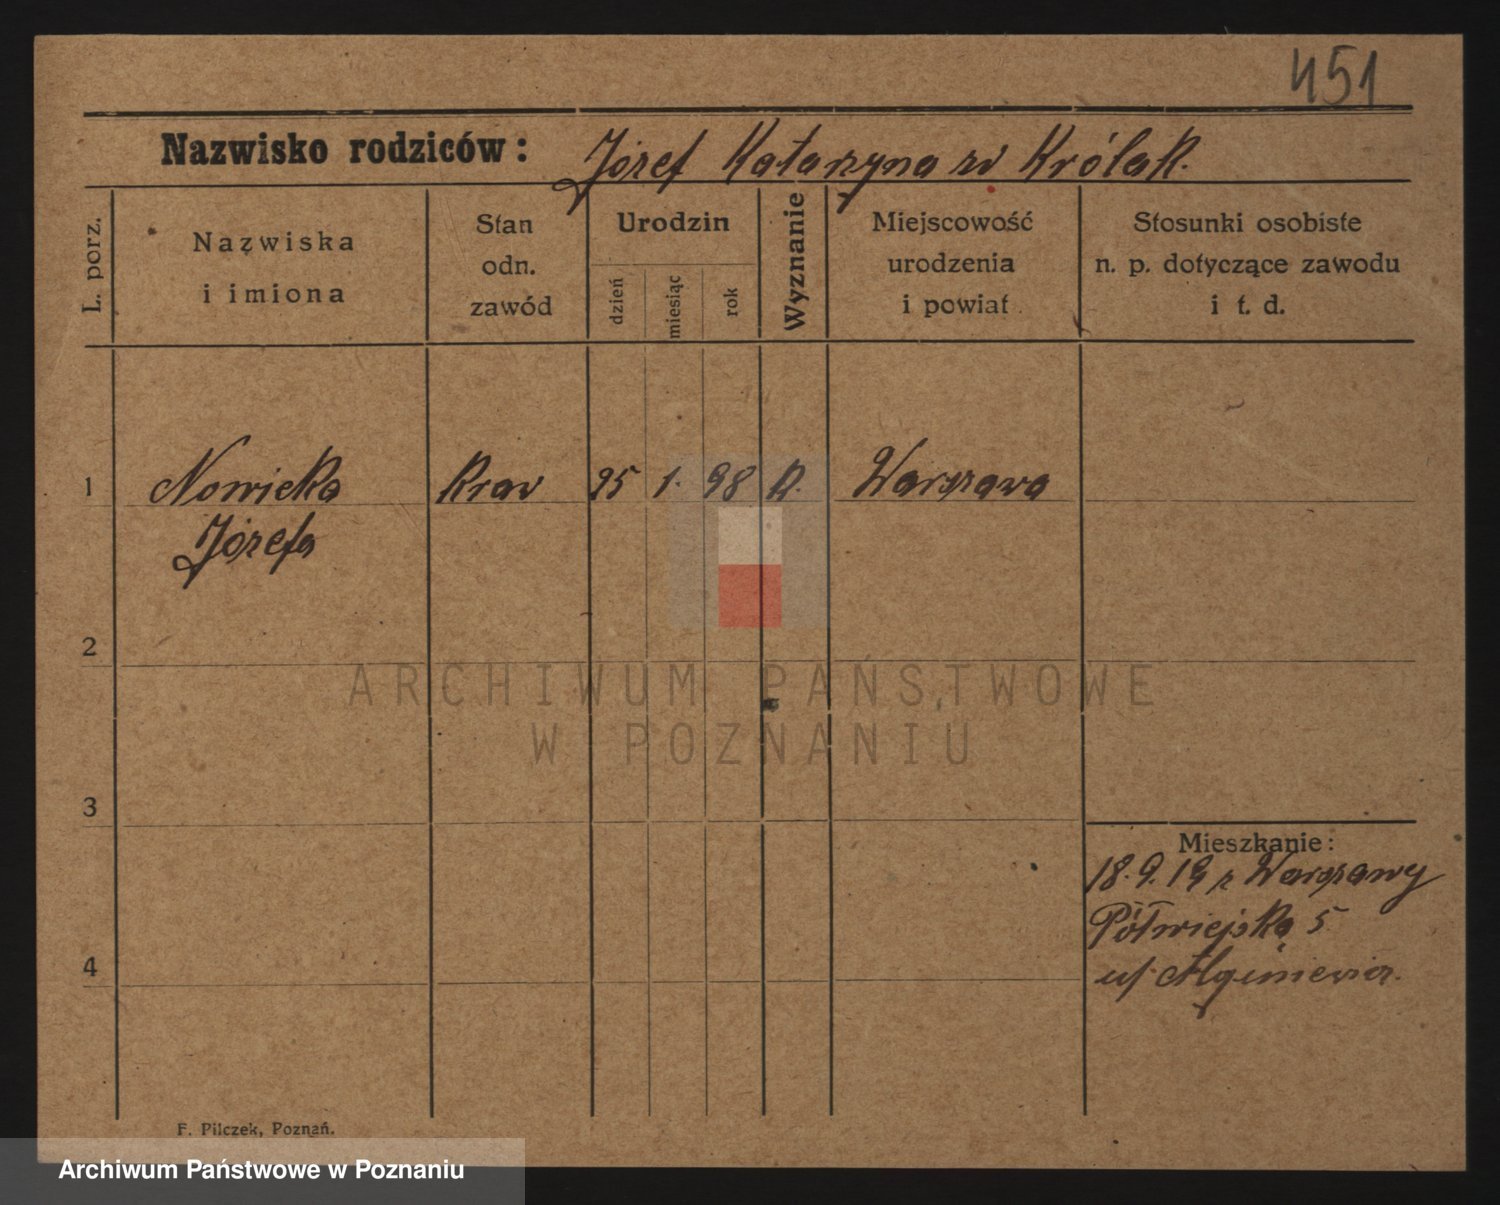 451
Nazwisko rodziców: Józef Katarzyna zd Królak.
L. porz.
Nazwiska
i imiona
Stan
odn.
zawód
Urodzin
dzień
miesiąc
rok
Wyznanie
Miejscowość
urodzenia
i powiat
Stosunki osobiste
n. p. dotyczące zawodu
i t. d.
1 Nowicka Kraw 25 1. 98 K. Warszawa
Józefa
2
ARCHIWUM PAŃSTWOWE
W POZNANIU
3
Mieszkanie:
18.9.19 z Warszawy
Półwiejska 5
4
F. Pilczek, Poznań.
Archiwum Państwowe w Poznaniu